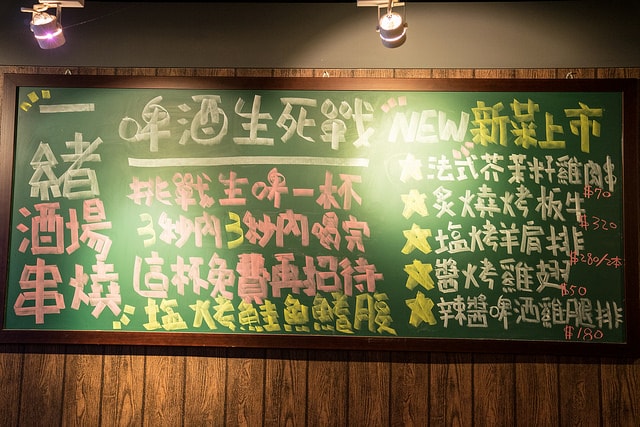 一緒
酒場
串燒
啤酒生死戰
挑戰生啤一杯
3秒內3秒內喝完
這杯免費再招待
塩烤鮭魚鰭腹
NEW新菜上市
★法式芥茉籽雞肉串
$70
★炙燒烤板牛
$320
★塩烤羊肩排
$280/2本
★醬烤雞翅
$50
★辣醬啤酒雞腿排
$180